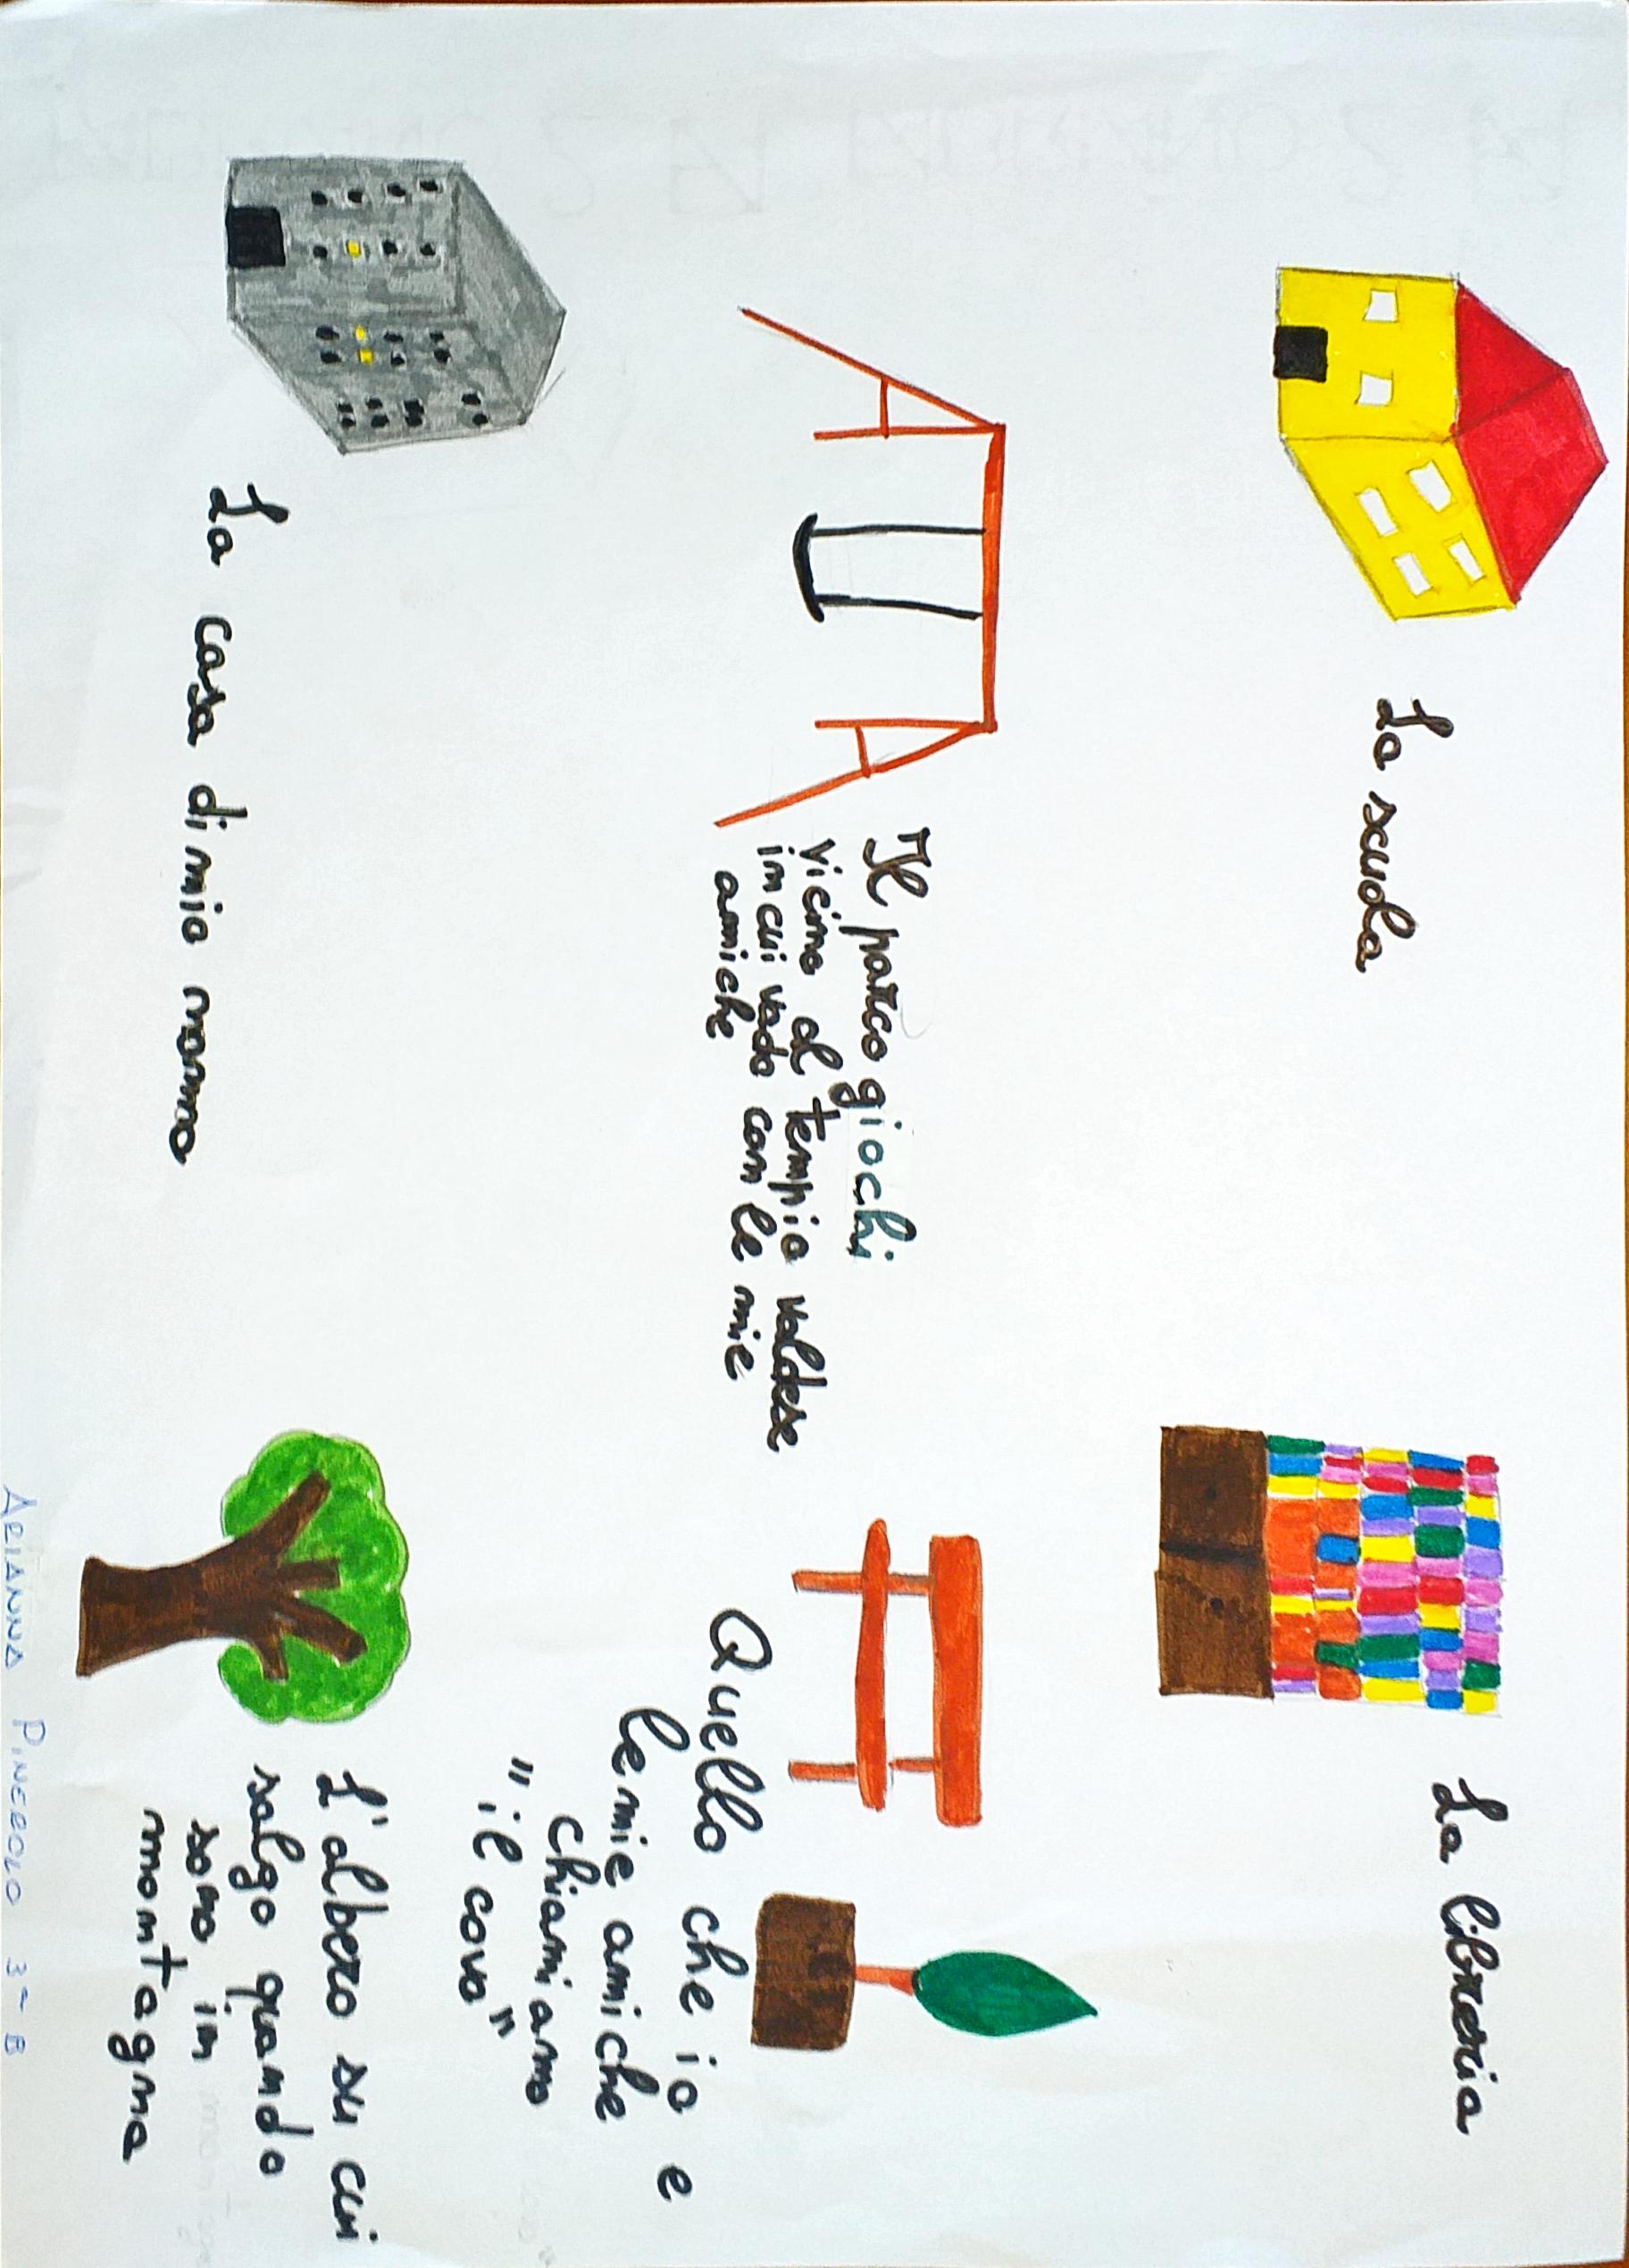 La scuola
La libreria
Il parco giochi
vicino al tempio valdese
in cui vado con le mie
amiche
Quello che io e
le mie amiche
chiamiamo
"il covo"
La casa di mio nonno
L'albero su cui
salgo quando
sono in
montagna
ARIANNA PINEROLO 3ª B